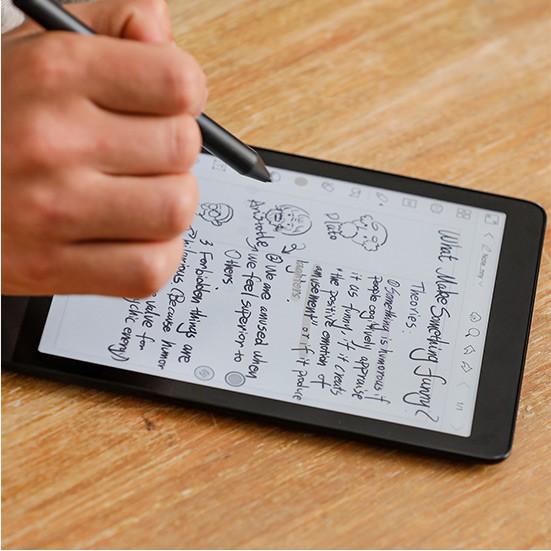 Note_279
1/1
What Make Something funny?
Theories:
① Something is humorous if
people cognitively appraise
it as funny, if it creats
"the positive emotion of
amusement"
or if it produce
laughters
Plato
Aristotle
② We are amused when
we feel superior to
Others
3 Forbidden things are
hilarious (Because humor
value for
energy)